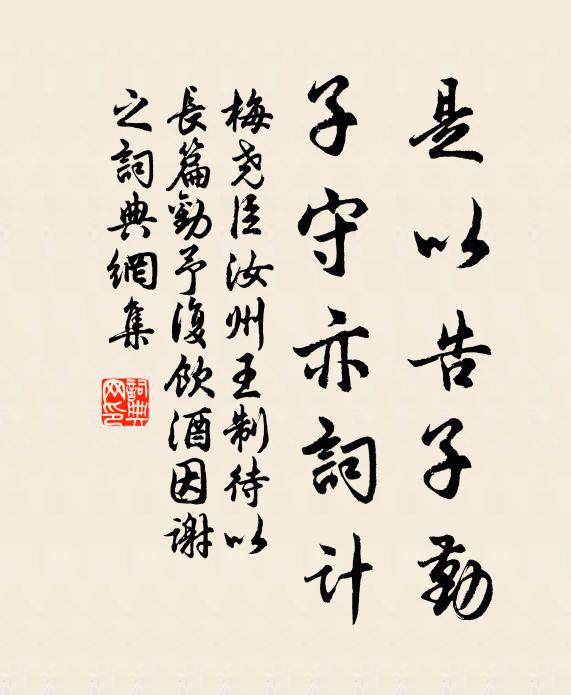 是以告子勤
子守亦詞计
梅尧臣汝州王制待以
長篇勸予復飲酒因謝
之詞典網集
詞典网印